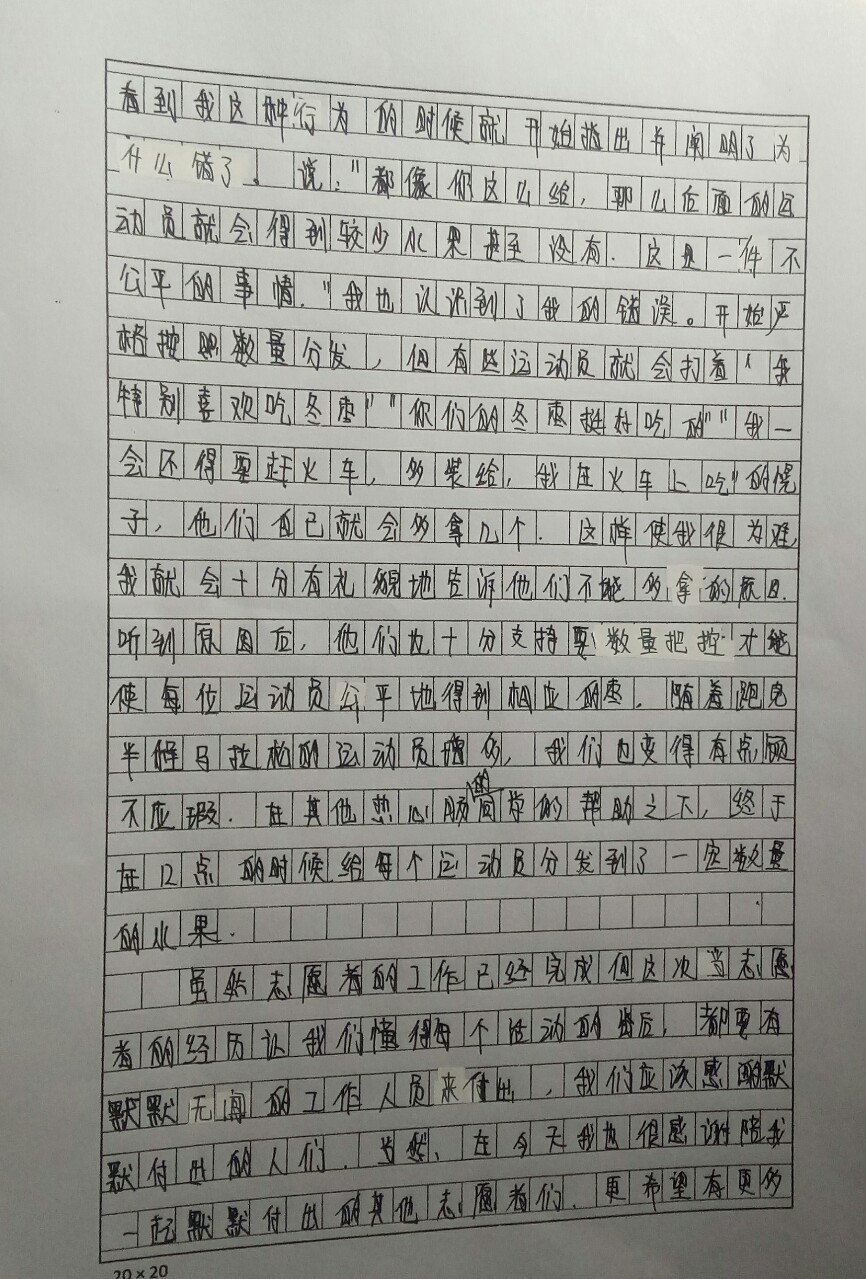 看到我这种行为的时候就开始指出并阐明了为
什么错了。说："都像你这么给，那么后面的运
动员就会得到较少水果甚至没有.这是一件不
公平的事情."我也认识到了我的错误。开始严
格按照数量分发，但有些运动员就会打着"我
特别喜欢吃冬枣""你们的冬枣挺好吃的""我一
会还得要赶火车，多装给，我在火车上吃"的幌
子，他们自己就会多拿几个.这样使我很为难，
我就会十分有礼貌地告诉他们不能多拿的原因.
听到原因后，他们也十分支持要数量把控才能
使每位运动员公平地得到相应的枣.随着跑完
半程马拉松的运动员增多，我们也变得有点顾
不应暇.在其他热心肠的同学的帮助之下，终于
在12点的时候给每个运动员分发到了一定数量
的水果.
虽然志愿者的工作已经完成但这次当志愿
者的经历让我们懂得每个活动的背后，都要有
默默无闻的工作人员来付出，我们应该感谢默
默付出的人们.当然、在今天我也很感谢陪我
一起默默付出的其他志愿者们.更希望有更多
20×20